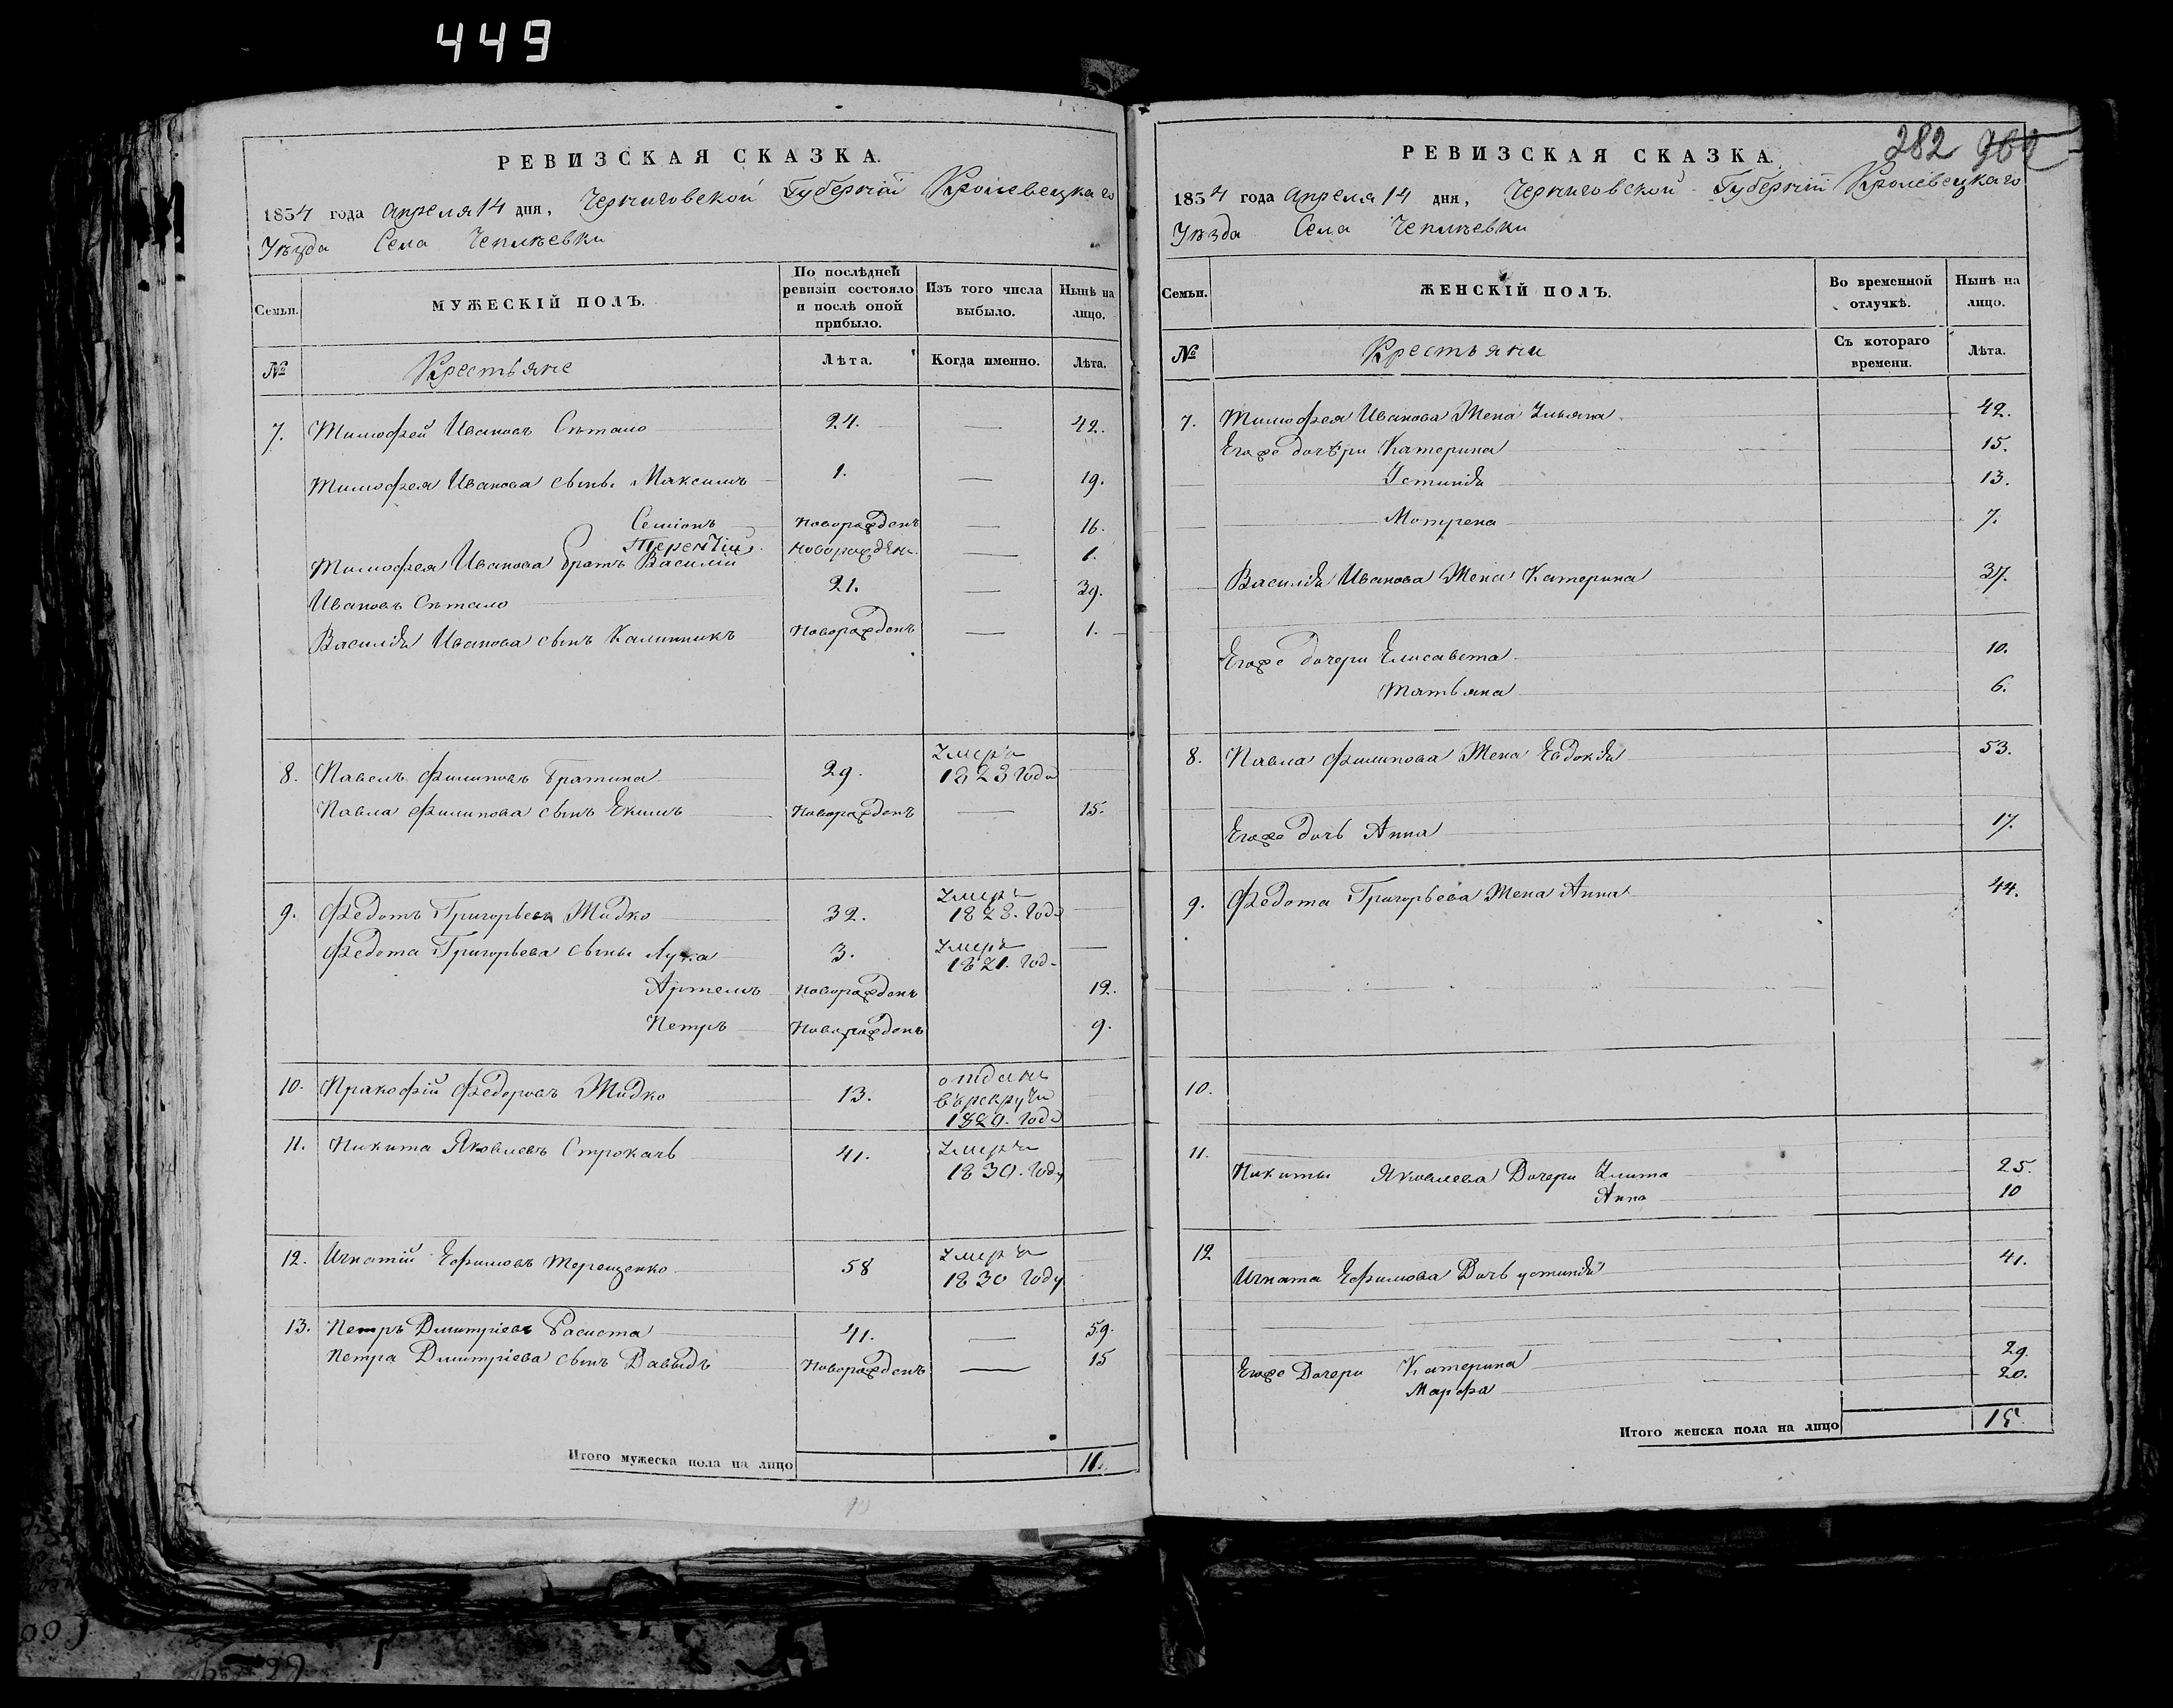 449
РЕВИЗСКАЯ СКАЗКА.
1834 года апреля 14 дня, Черниговской Губерніи Кролевецкаго
Уѣзда Села Чепліевки
Семьи. МУЖЕСКІЙ ПОЛЪ. По послѣдней ревизіи состояло и послѣ оной прибыло. Изъ того числа выбыло. Нынѣ на лицо.
№ Крестьяне Лѣта. Когда именно. Лѣта.
7. Тимофей Ивановъ Сѣтало 24. — 42.
Тимофея Иванова сынъ Максимъ 1. — 19.
Семіонъ Новорожденъ — 16.
Терентій Новорожден. — 1.
Тимофея Иванова братъ Василій
Ивановъ Сѣтало 21. — 39.
Василія Иванова сынъ Калинникъ Новорожденъ — 1.
8. Павелъ Филиповъ Братина 29. Умеръ 1823 года —
Павла Филипова сынъ Екимъ Новорожденъ — 15.
9. Федотъ Григорьевъ Жидко 32. Умеръ 1828. года —
Федота Григорьева сыны Лука 3. Умеръ 1821. год. —
Артемъ Новорожденъ 12.
Петръ Новорожденъ 9.
10. Пракофій Федоровъ Жидко 13. отданъ въ рекруты 1829. года
11. Никита Яковлевъ Строкачь 41. Умеръ 1830. году
12. Игнатій Ефимовъ Терещенко 58 Умеръ 1830 году
13. Петръ Дмитріевъ 41. — 59.
Петра Дмитріева сынъ Давыдъ Новорожденъ — 15
Итого мужеска пола на лицо 11.
282
РЕВИЗСКАЯ СКАЗКА.
1834 года апреля 14 дня, Черниговской Губерніи Кролевецкаго
Уѣзда Села Чепліевки
Семьи. ЖЕНСКІЙ ПОЛЪ. Во временной отлучкѣ. Нынѣ на лицо.
№ Крестьяни Съ котораго времени. Лѣта.
7. Тимофея Иванова Жена Ульяна 42.
Егоже дочѣри Катерина 15.
Устинія 13.
Мотрена 7.
Василія Иванова Жена Катерина 37.
Егоже дочери Елисавета 10.
Татьяна 6.
8. Павла Филипова Жена Евдокія 53.
Егоже дочь Анна 17.
9. Федота Григорьева Жена Анна 44.
10.
11.
Никиты Яковлева Дочери Улита 25.
Анна 10
12
Игната Ефимова Дочь устинія 41.
Егоже Дочери Катерина 29.
Марфа 20.
Итого женска пола на лицо 15.